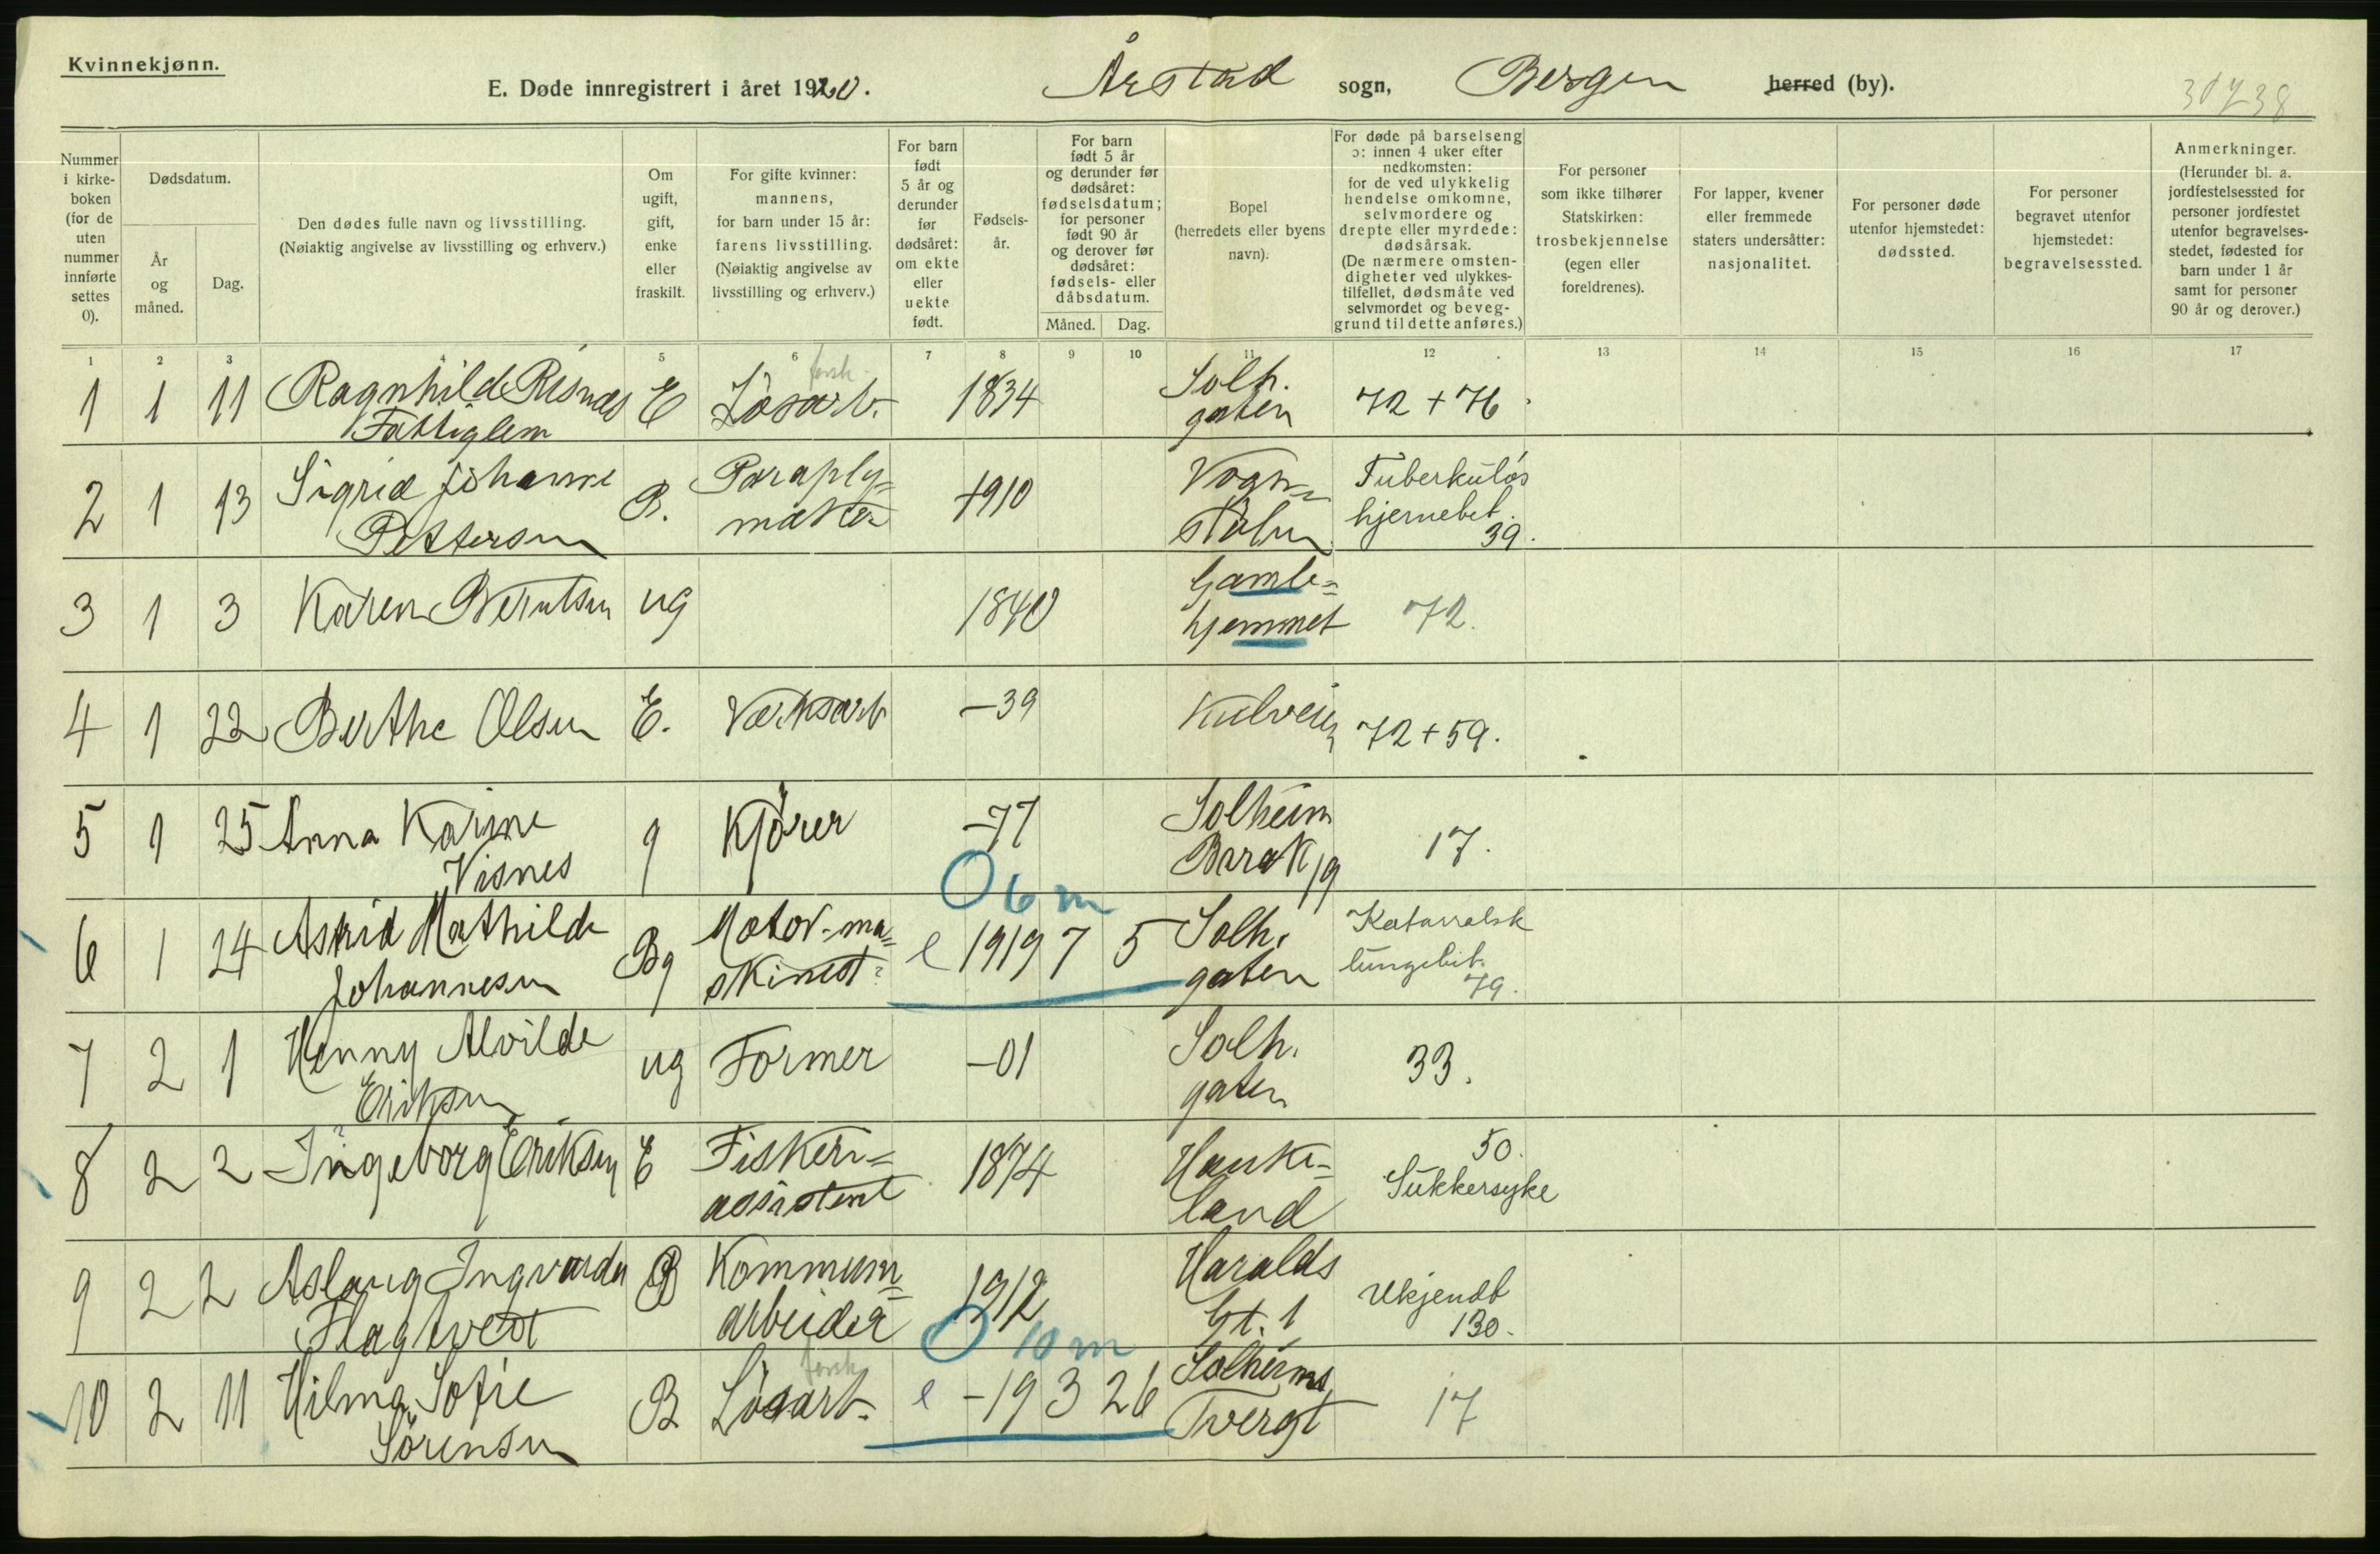 Kvinnekjønn.
E. Døde innregistrert i året 1920. Årstad sogn, Bergen herred (by). 30738
Nummer i kirke-boken (for de uten nummer innførte settes 0).
Dødsdatum.
År og måned.
Dag.
Den dødes fulle navn og livsstilling.
(Nøiaktig angivelse av livsstilling og erhverv.)
Om ugift, gift, enke eller fraskilt.
For gifte kvinner: mannens, for barn under 15 år: farens livsstilling. (Nøiaktig angivelse av livsstilling og erhverv.)
For barn født 5 år og derunder før dødsåret: om ekte eller uekte født.
Fødsels-år.
For barn født 5 år og derunder før dødsåret: fødselsdatum; for personer født 90 år og derover før dødsåret: fødsels- eller dåbsdatum.
Måned. Dag.
Bopel (herredets eller byens navn).
For døde på barselseng ɔ: innen 4 uker efter nedkomsten: for de ved ulykkelig hendelse omkomne, selvmordere og drepte eller myrdede: dødsårsak. (De nærmere omsten-digheter ved ulykkes-tilfellet, dødsmåte ved selvmordet og beveg-grund til dette anføres.)
For personer som ikke tilhører Statskirken: trosbekjennelse (egen eller foreldrenes).
For lapper, kvener eller fremmede staters undersåtter: nasjonalitet.
For personer døde utenfor hjemstedet: dødssted.
For personer begravet utenfor hjemstedet: begravelsessted.
Anmerkninger. (Herunder bl. a. jordfestelsessted for personer jordfestet utenfor begravelses-stedet, fødested for barn under 1 år samt for personer 90 år og derover.)
1 2 3 4 5 6 7 8 9 10 11 12 13 14 15 16 17
1 1 11 Ragnhild Risnæs Fattiglem E Løsarb. forsk 1834 Solh. gaten 72 + 76.
2 1 13 Sigrid Johanne Pettersen B. Paraply= maker 1910 Vogn= stølen Tuberkuløs hjernebet. 39.
3 1 3 Karen Berntsen ug 1840 Gamle= hjemmet 72.
4 1 22 Berthe Olsen E. Værksarb -39 Kulveien 72 + 59.
5 1 25 Anna Karine Visnes g Kjører -77 Solheim Barak 19 17.
O 6 m
6 1 24 Astrid Mathilde Johannesen Bg Motor-ma= skinist e 1919 7 5 Solh. gaten Katarralsk lungebet. 79.
7 2 1 Henny Alvilde Eriksen ug Former -01 Solh. gaten 33.
8 2 2 Ingeborg Eriksen E Fiskeri= assistent 1874 Hauke= land 50. Sukkersyke
9 2 2 Aslaug Ingvarda Flagtvedt B Kommun= arbeider 1912 Haralds Gt. 1 Ukjendt 130.
O 10 m
10 2 11 Hilma Sofie Sörensen B Løsarb. forsk e -19 3 26 Solheims Tvergt 17